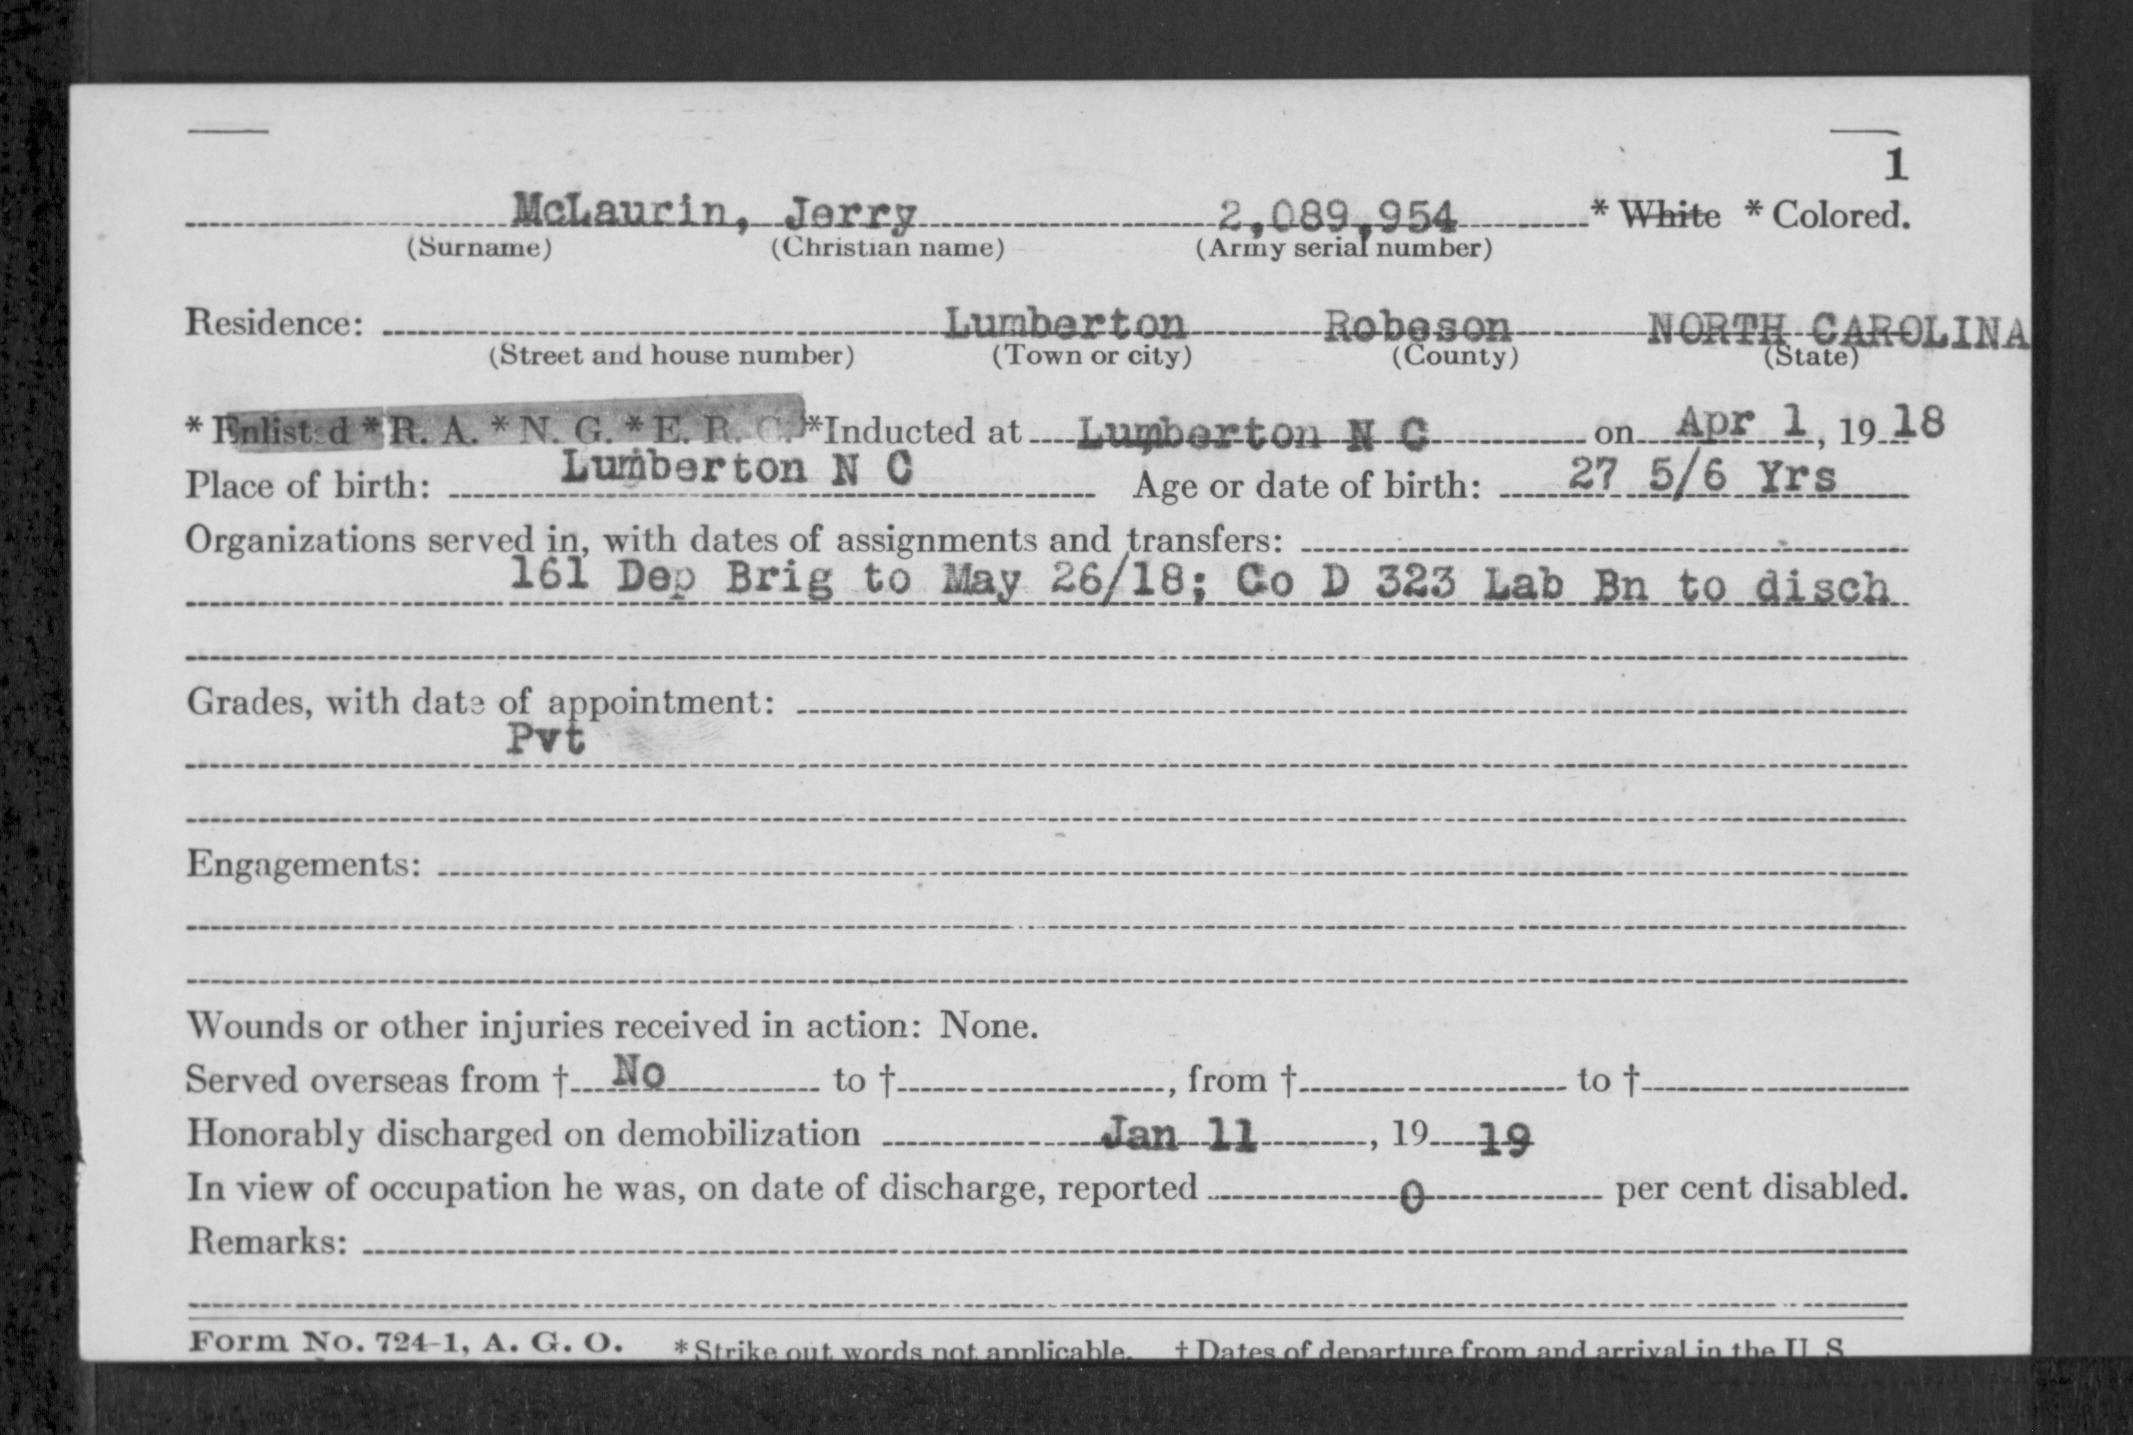 1
McLaurin, Jerry 2,089,954 * White * Colored.
(Surname) (Christian name) (Army serial number)
Residence: Lumberton Robeson NORTH CAROLINA
(Street and house number) (Town or city) (County) (State)
* Enlisted * R. A. * N. G. * E. R. C. *Inducted at Lumberton N C on Apr 1, 19 18
Place of birth: Lumberton N C Age or date of birth: 27 5/6 Yrs
Organizations served in, with dates of assignments and transfers:
161 Dep Brig to May 26/18; Co D 323 Lab Bn to disch
Grades, with date of appointment:
Pvt
Engagements:
Wounds or other injuries received in action: None.
Served overseas from † No to †, from † to †
Honorably discharged on demobilization Jan 11, 19 19
In view of occupation he was, on date of discharge, reported 0 per cent disabled.
Remarks:
Form No. 724-1, A. G. O. * Strike out words not applicable. † Dates of departure from and arrival in the U S